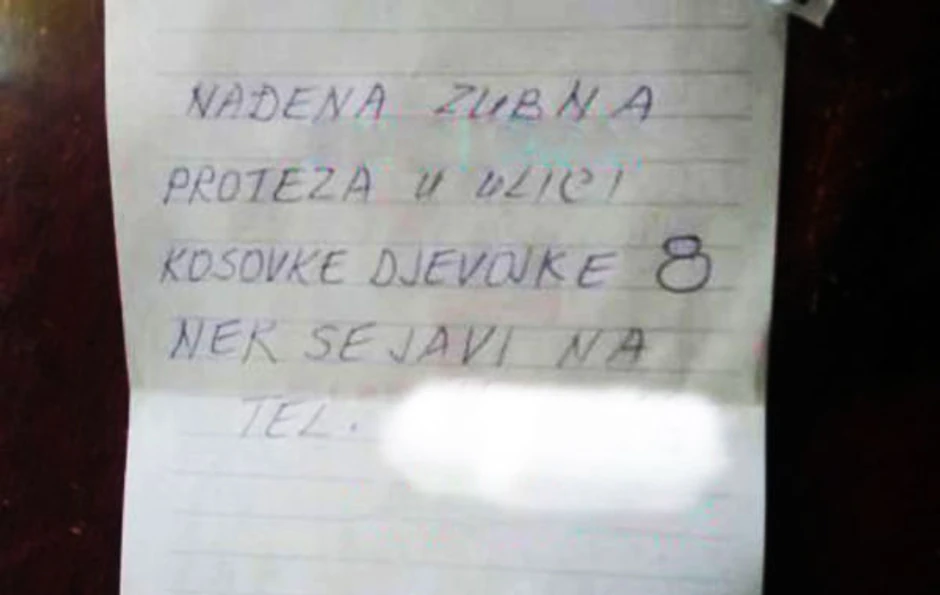 NAĐENA ZUBNA
PROTEZA U ULICI
KOSOVKE DJEVOJKE 8
NEK SE JAVI NA
TEL.